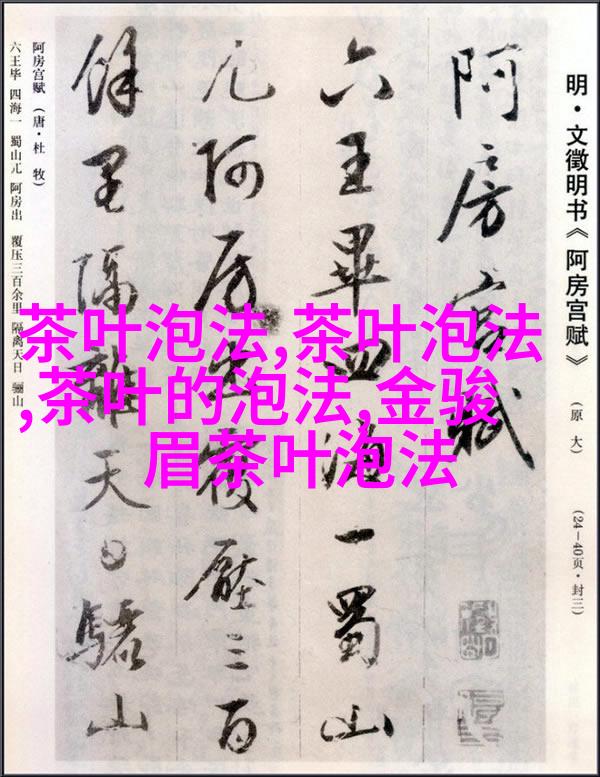 明·文徵明书《阿房宫赋》
(原大)
(24—40页·封三)
阿房宫賦
六王畢四海一蜀山
兀阿房出覆壓三百
餘里隔離天日驪山
阿房宫赋（唐·杜 牧）
六王毕 四海一 蜀山兀 阿房出 覆压三百余里 隔离天日 骊山
茶叶泡法,茶叶泡法
,茶叶的泡法,金骏
眉茶叶泡法